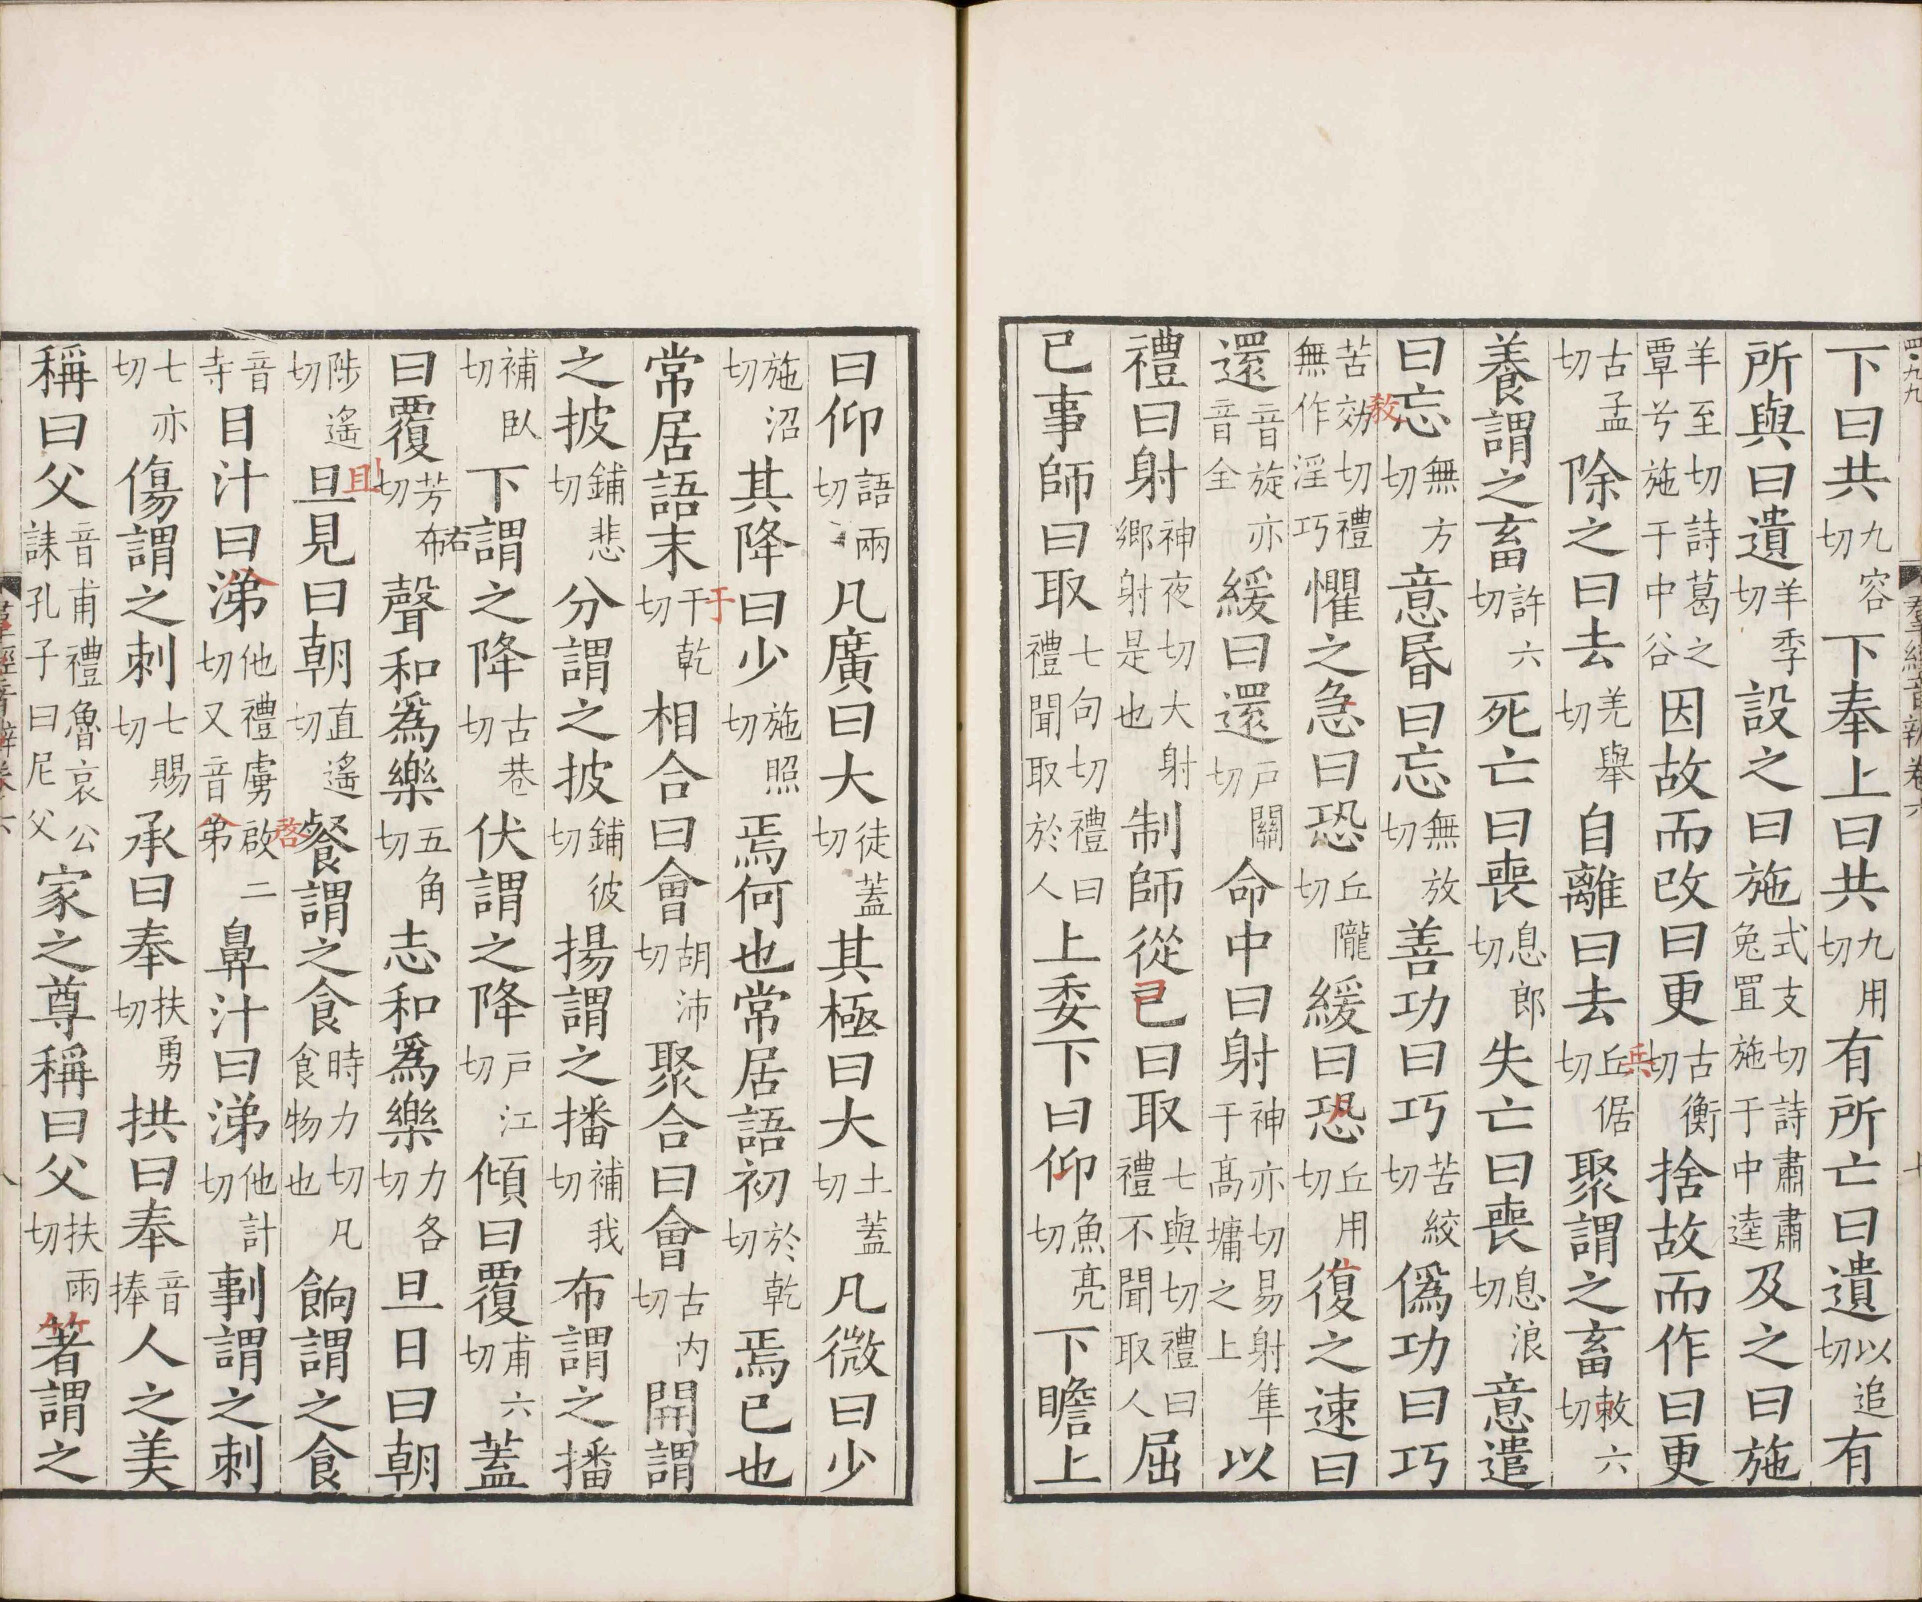 下曰共九容切下奉上曰共九用切有所亡曰遺以追切有
所與曰遺羊季切設之曰施式支切詩肅肅兔罝施于中逵及之曰施
羊至切詩葛之覃兮施于中谷因故而改曰更古衡切捨故而作曰更
古孟切除之曰去羌舉切自離曰去丘倨切聚謂之畜敕六切
養謂之畜許六切死亡曰喪息郎切失亡曰喪息浪切意遣
曰忘無方切意昬曰忘無放切善功曰巧苦絞切偽功曰巧
苦効切禮無作淫巧懼之急曰恐丘隴切緩曰恐丘用切復之速曰
還音旋亦音全緩曰還戸關切命中曰射神亦切易射隼于髙墉之上以
禮曰射神夜切大射鄉射是也制師從己曰取七與切禮曰禮不聞取人屈
已事師曰取七句切禮曰禮聞取於人上委下曰仰魚亮切下瞻上
曰仰語兩切凡廣曰大徒蓋切其極曰大土蓋切凡微曰少
施沼切其降曰少施照切焉何也常居語初於乾切焉已也
常居語末于乾切相合曰會胡沛切聚合曰會古内切開謂
之披鋪悲切分謂之披鋪彼切揚謂之播補我切布謂之播
補臥切下謂之降古巷切伏謂之降戸江切傾曰覆甫六切蓋
曰覆芳布切聲和爲樂五角切志和爲樂力各切旦日曰朝
陟遙切旦見曰朝直遙切餐謂之食時力切凡食物也餉謂之食
音寺目汁曰涕他禮切又音弟鼻汁曰涕他計切剚謂之刺
七亦切傷謂之刺七賜切承曰奉扶勇切拱曰奉音捧人之美
稱曰父音甫禮魯哀公誄孔子曰尼父家之尊稱曰父扶雨切著謂之